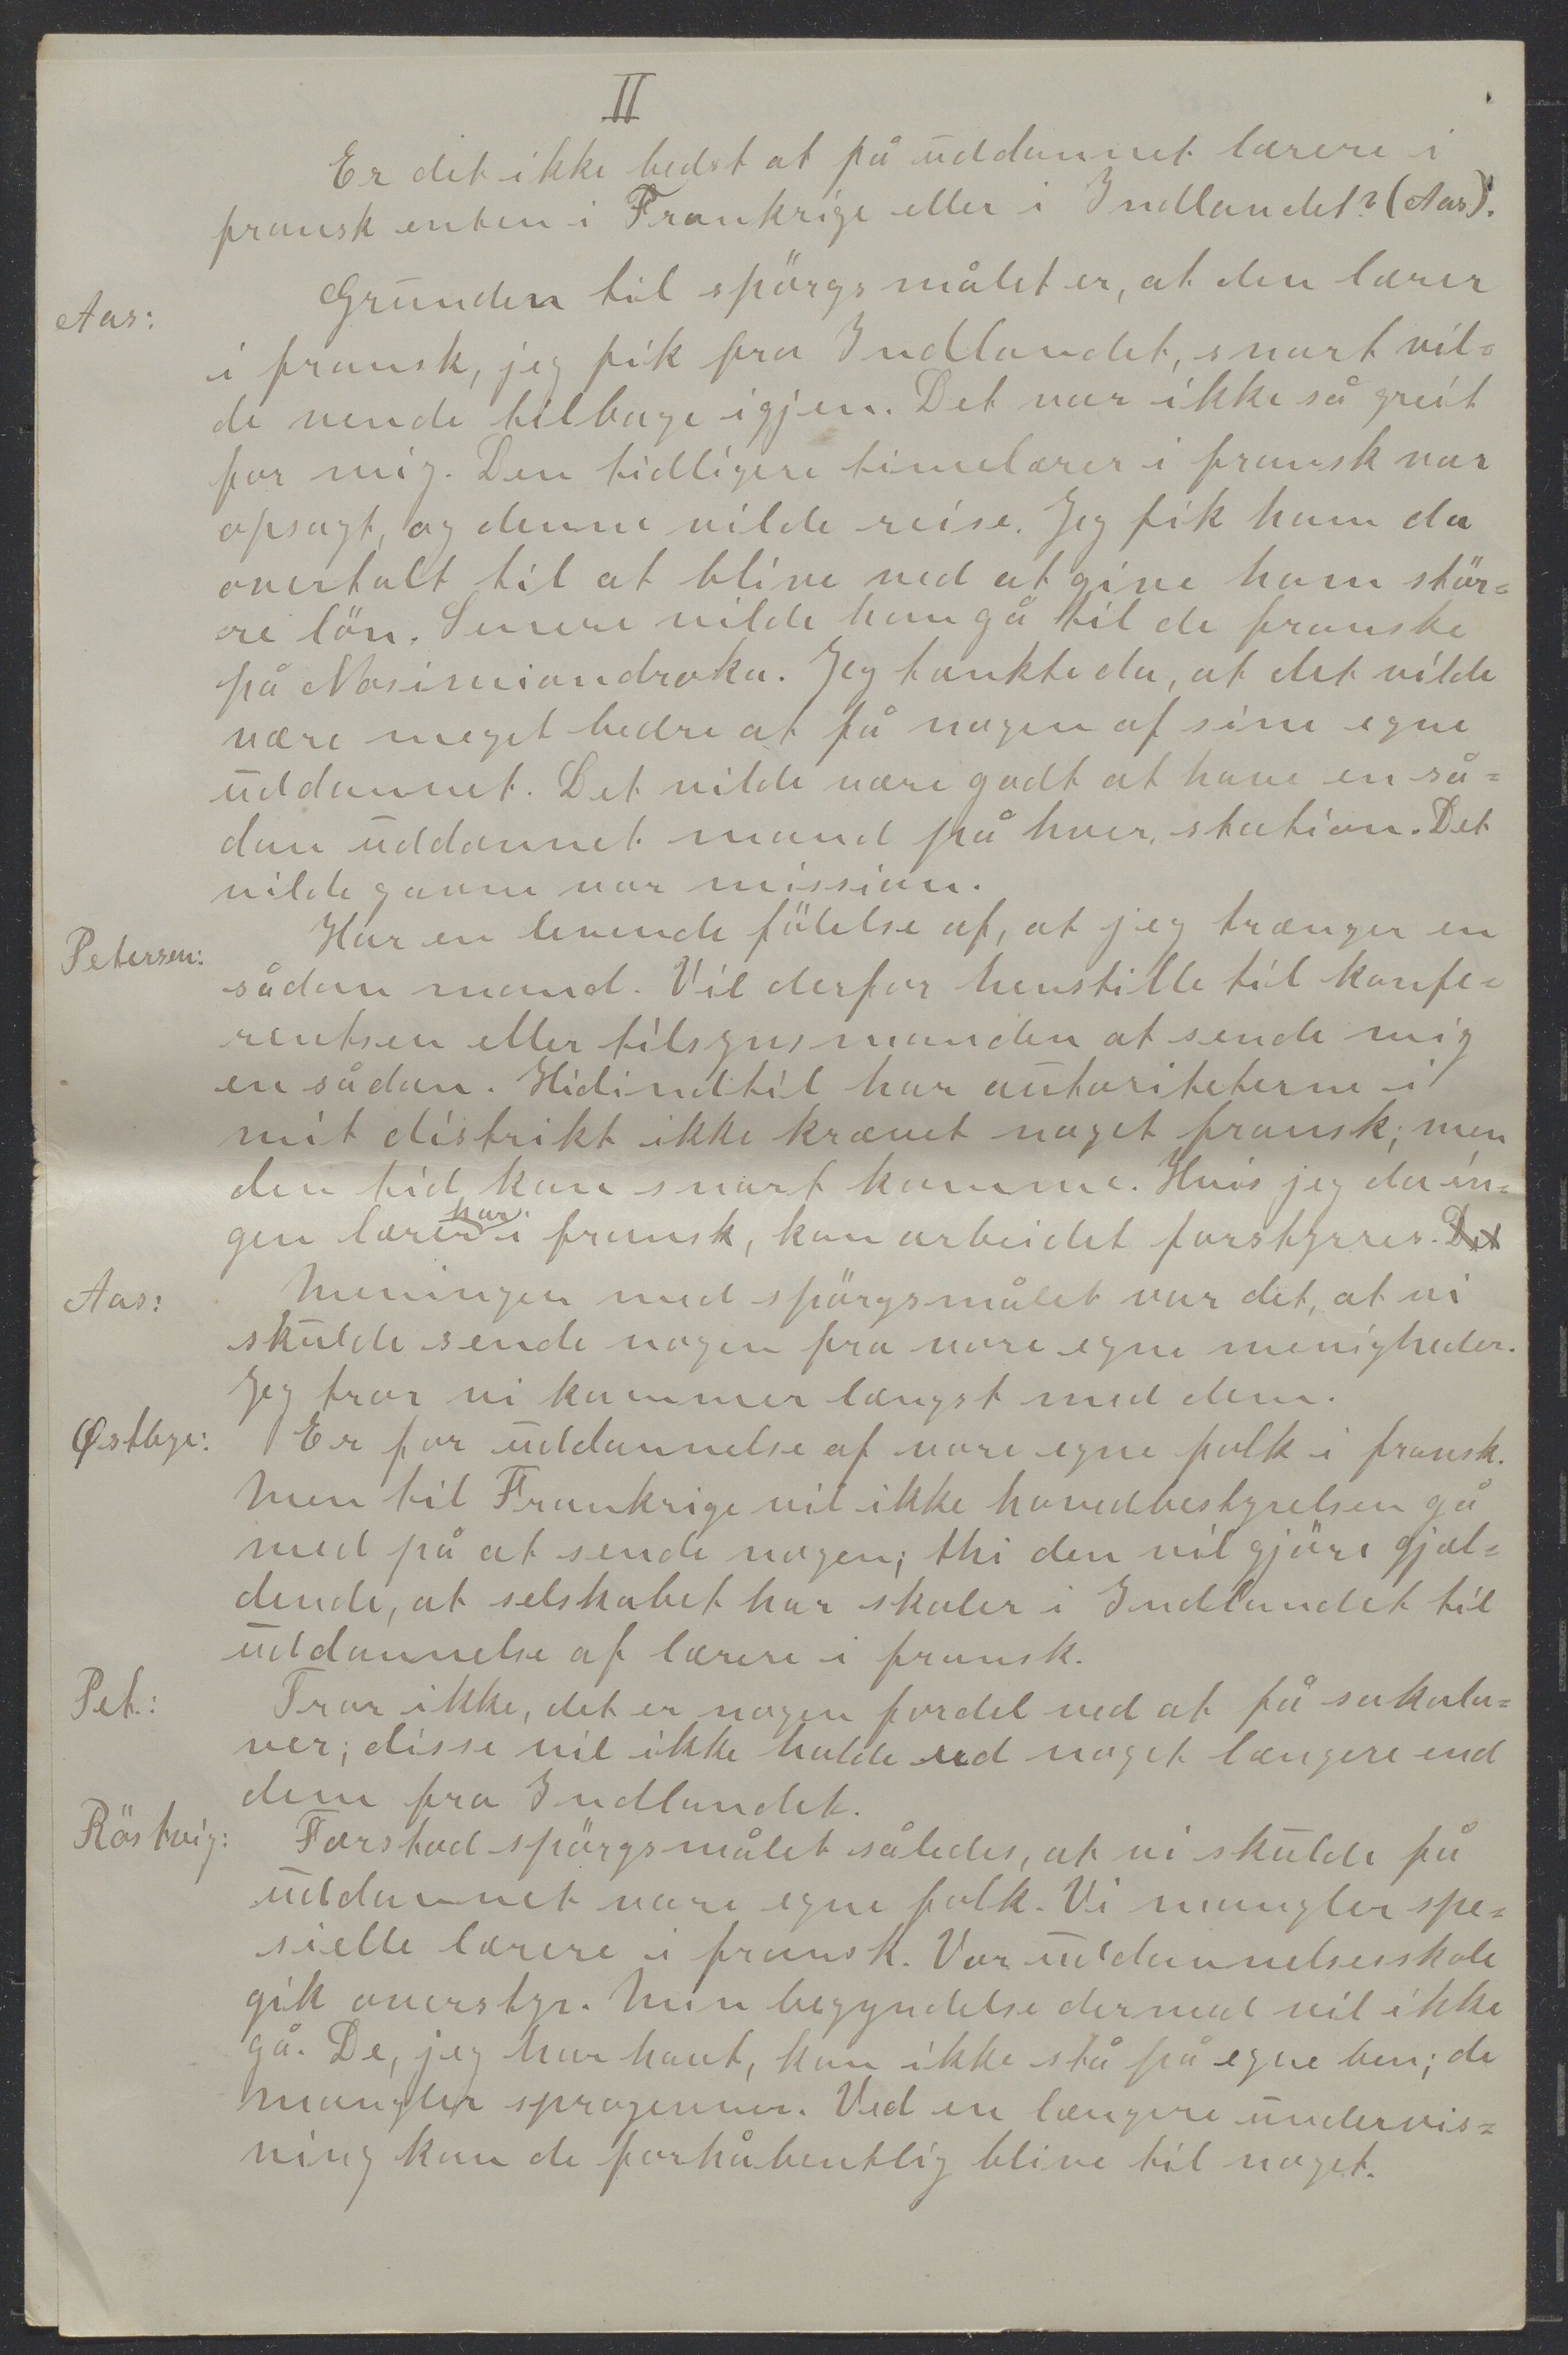 II
Er det ikke bedst at få uddannet lærere i
fransk enten i Frankrige eller i Indlandet? (Aas).
Aas: Grunden til spörgsmålet er, at den lærer
i fransk, jeg fik fra Indlandet, snart vil=
de vende tilbage igjen. Det var ikke så greit
for mig. Den tidligere timelærer i fransk var
opsagt, og denne vilde reise. Jeg fik ham da
overtalt til at blive ved at give ham stör=
re lön. Senere vilde han gå til de franske
på Nosimiandroka. Jeg tænkte da, at det vilde
være meget bedre at få nogen af sine egne
uddannet. Det vilde være godt at have en så=
dan uddannet mand på hver station. Det
vilde gavne vor mission.
Petersen: Har en levende fölelse af, at jeg trænger en
sådan mand. Vil derfor henstille til konfe=
rentsen eller tilsynsmanden at sende mig
en sådan. Hidindtil har autoriteterne i
mit distrikt ikke krævet noget fransk; men
den tid kan snart komme. Hvis jeg da in=
gen lærer har i fransk, kan arbeidet forstyrres. Det
Aas: Meningen med spörgsmålet var det, at vi
skulde sende nogen fra vore egne menigheder.
Jeg tror vi kommer længst med dem.
Østbye: Er for uddannelse af vore egne folk i fransk.
Men til Frankrige vil ikke hovedbestyrelsen gå
med på at sende nogen; thi den vil gjöre gjæl=
dende, at selskabet har skoler i Indlandet til
uddannelse af lærere i fransk.
Pet.: Tror ikke, det er nogen fordel ved at få sakala=
ver; disse vil ikke holde ud noget længere end
dem fra Indlandet.
Röstvig: Forstod spörgsmålet således, at vi skulde få
uddannet vore egne folk. Vi mangler spe=
sielle lærere i fransk. Vor uddannelsesskole
gik overstyr. Min begyndelse dermed vil ikke
gå. De, jeg har havt, kan ikke stå på egne ben; de
mangler sprogevner. Ved en længere undervis=
ning kan de forhåbentlig blive til noget.